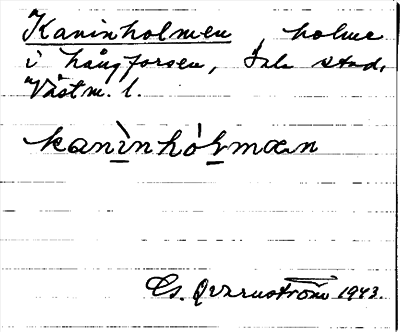 Kaninholmen, holme
i Långforsen, Sala stad,
Västm. l.
kanìnhólmæn
Cs. Qvarnström 1943.